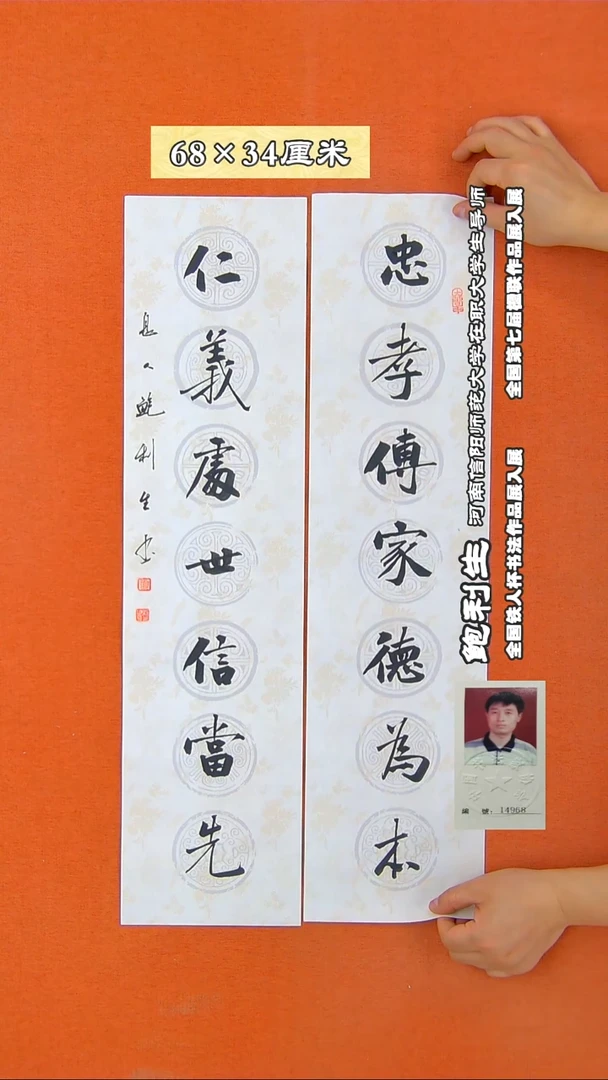 68×34厘米
忠孝傳家德為本
仁義處世信當先
息人鲍利生书
鲍利生 河南信阳师范大学在职大学生导师
全国第七届楹联作品展入展
全国铁人杯书法作品展入展
編號:14968